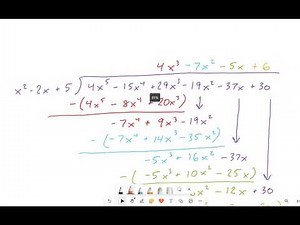 4x³ -7x² -5x +6
x²-2x+5 ) 4x⁵ -15x⁴ +29x³ -19x² -37x +30
-(4x⁵ -8x⁴ +20x³)
-7x⁴ +9x³ -19x²
-(-7x⁴ +14x³ -35x²)
-5x³ +16x² -37x
-(-5x³ +10x² -25x)
x² -12x +30